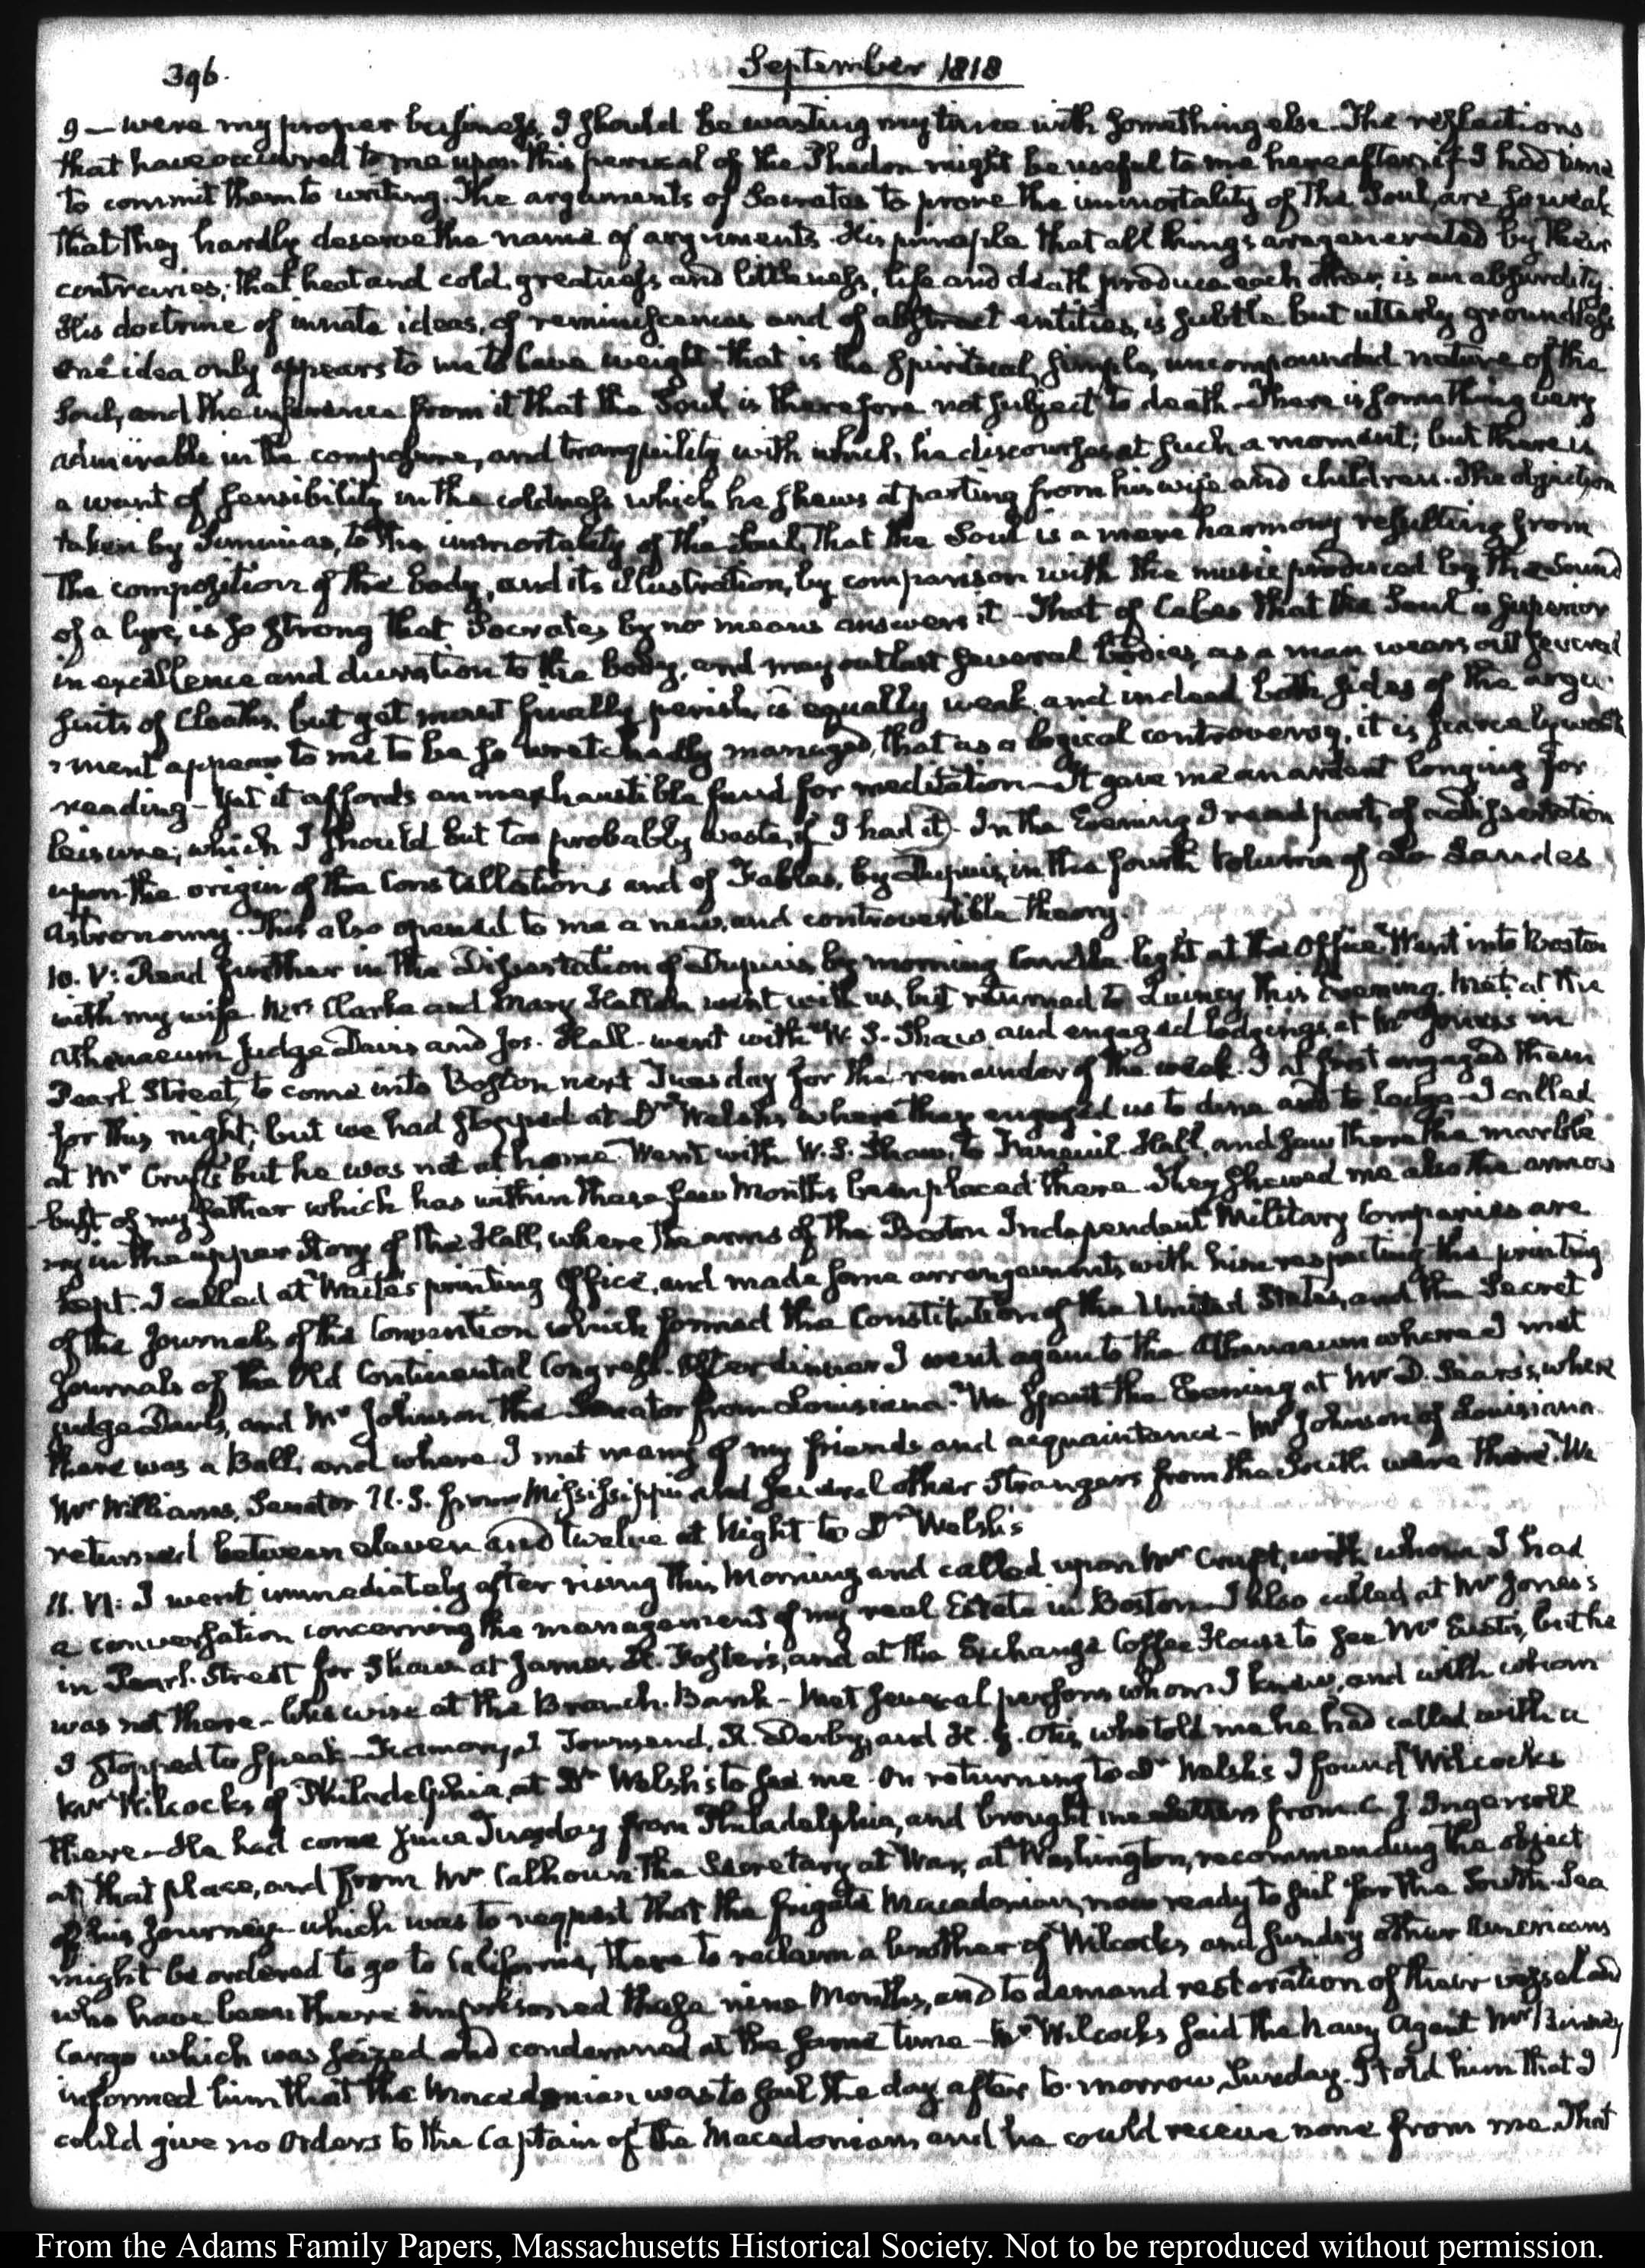 396.
September 1818
9 — were my proper business, I should be wasting my time with something else. The reflections
that have occurred to me upon this perusal of the Phedon might be useful to me hereafter, if I had time
to commit them to writing. The arguments of Socrates to prove the immortality of the Soul, are so weak
that they hardly deserve the name of arguments. His principle that all things are generated by their
contraries; that heat and cold, greatness and littleness, life and death produce each other, is an absurdity.
His doctrine of innate ideas, of reminiscences and of abstract entities, is subtle but utterly groundless
One idea only appears to me to have weight. that is the spiritual, simple, uncompounded nature of the
Soul, and the inference from it that the Soul, is therefore not subject to death. There is something very
admirable in the composure, and tranquility with which he discourses at such a moment; but there is
a want of sensibility in the coldness which he shews at parting from his wife and children. The objection
taken by Simmias, to the immortality of the Soul, that the Soul is a mere harmony resulting from
the composition of the body, and its illustration, by comparison with the music produced by the Sound
of a lyre, is so strong that Socrates by no means answers it - That of Cebes that the Soul is superior
in excellence and duration to the body, and may outlast several bodies, as a man wears out several
suits of Cloaths, but yet must finally perish, is equally weak, and indeed both sides of the argu-
ment appear to me to be so wretchedly managed, that as a logical controversy, it is scarcely worth
reading - Yet it affords an inexhaustible fund for meditation - It gave me an ardent longing for
leisure; which I should but too probably waste, if I had it. In the Evening I read part of a dissertation
upon the origin of the Constellations and of Fables, by Dupuis, in the fourth volume of La Lande's
Astronomy. This also opened to me a new, and controvertible theory.
10. V: Read further in the Dissertation of Dupuis, by morning Candle light at the Office. Went into Boston
with my wife. Mrs Clarke and Mary Hellen went with us, but returned to Quincy this Evening. Met at the
Athenaeum Judge Davis and Jos. Hall. went with W. S. Shaw and engaged lodgings at Mrs Jones's in
Pearl Street, to come into Boston next Tuesday for the remainder of the week. I at first engaged them
for this night; but we had stopped at Dr Welsh's where they engaged us to dine and to lodge - I called
at Mr Cruft's but he was not at home. Went with W. S. Shaw, to Faneuil-Hall, and saw there the marble
bust of my father which has within these few Months been placed there. They shewed me also the armou-
ry in the upper Story of the Hall, where the arms of the Boston Independent Military Companies are
kept. I called at Wait's printing Office, and made some arrangements with him respecting the printing
of the Journals of the Convention which formed the Constitution of the United States, and the Secret
Journals of the Old Continental Congress. After dinner I went again to the Athenaeum where I met
Judge Davis, and Mr Johnson, the Senator from Louisiana. We spent the Evening at Mr D. Sears's, where
there was a Ball; and where I met many of my friends and acquaintance - Mr Johnson of Louisiana.
Mr Williams, Senator U.S. from Mississippi and several other Strangers from the South were there. We
returned between eleven and twelve at Night to Dr Welsh's
11. VI: I went immediately after rising this Morning and called upon Mr Cruft, with whom I had
a conversation concerning the management of my real Estate in Boston - I also called at Mrs Jones's
in Pearl-Street for Shaw at James H. Foster's, and at the Exchange Coffee House to see Mr Eustis, but he
was not there - likewise at the Branch-Bank - Met several persons whom I knew, and with whom
I stopped to speak - Townsend, R. Derby, and H. G. Otis, who told me he had called with a
Mr Wilcocks of Philadelphia, at Dr Welsh's to see me. On returning to Dr Welsh's I found Wilcocks
there - He had come since Tuesday from Philadelphia, and brought me Letters from C. J. Ingersoll
at that place, and from Mr Calhoun the Secretary at War, at Washington, recommending the object
of his Journey - which was to request that the frigate Macedonian, now ready to sail for the South-Sea
might be ordered to go to California, there to reclaim a brother of Wilcocks and sundry other Americans
who have been there imprisoned these nine Months, and to demand restoration of their vessel and
Cargo which was seized and condemned at the same time - Mr Wilcocks said the Navy Agent Mr Binney
informed him that the Macedonian was to sail the day after to-morrow, Sunday. I told him that I
could give no Orders to the Captain of the Macedonian and he could receive none from me. That
From the Adams Family Papers, Massachusetts Historical Society. Not to be reproduced without permission.